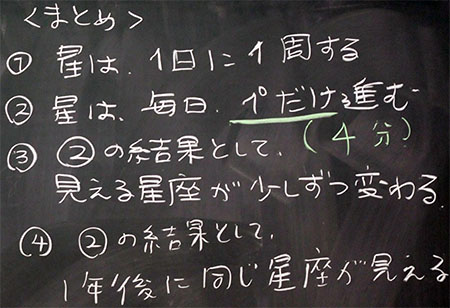 <まとめ>
① 星は、1日に1周する
② 星は、毎日、1°だけ進む
(4分)
③ ②の結果として、
見える星座が少しずつ変わる。
④ ②の結果として、
1年後に同じ星座が見える